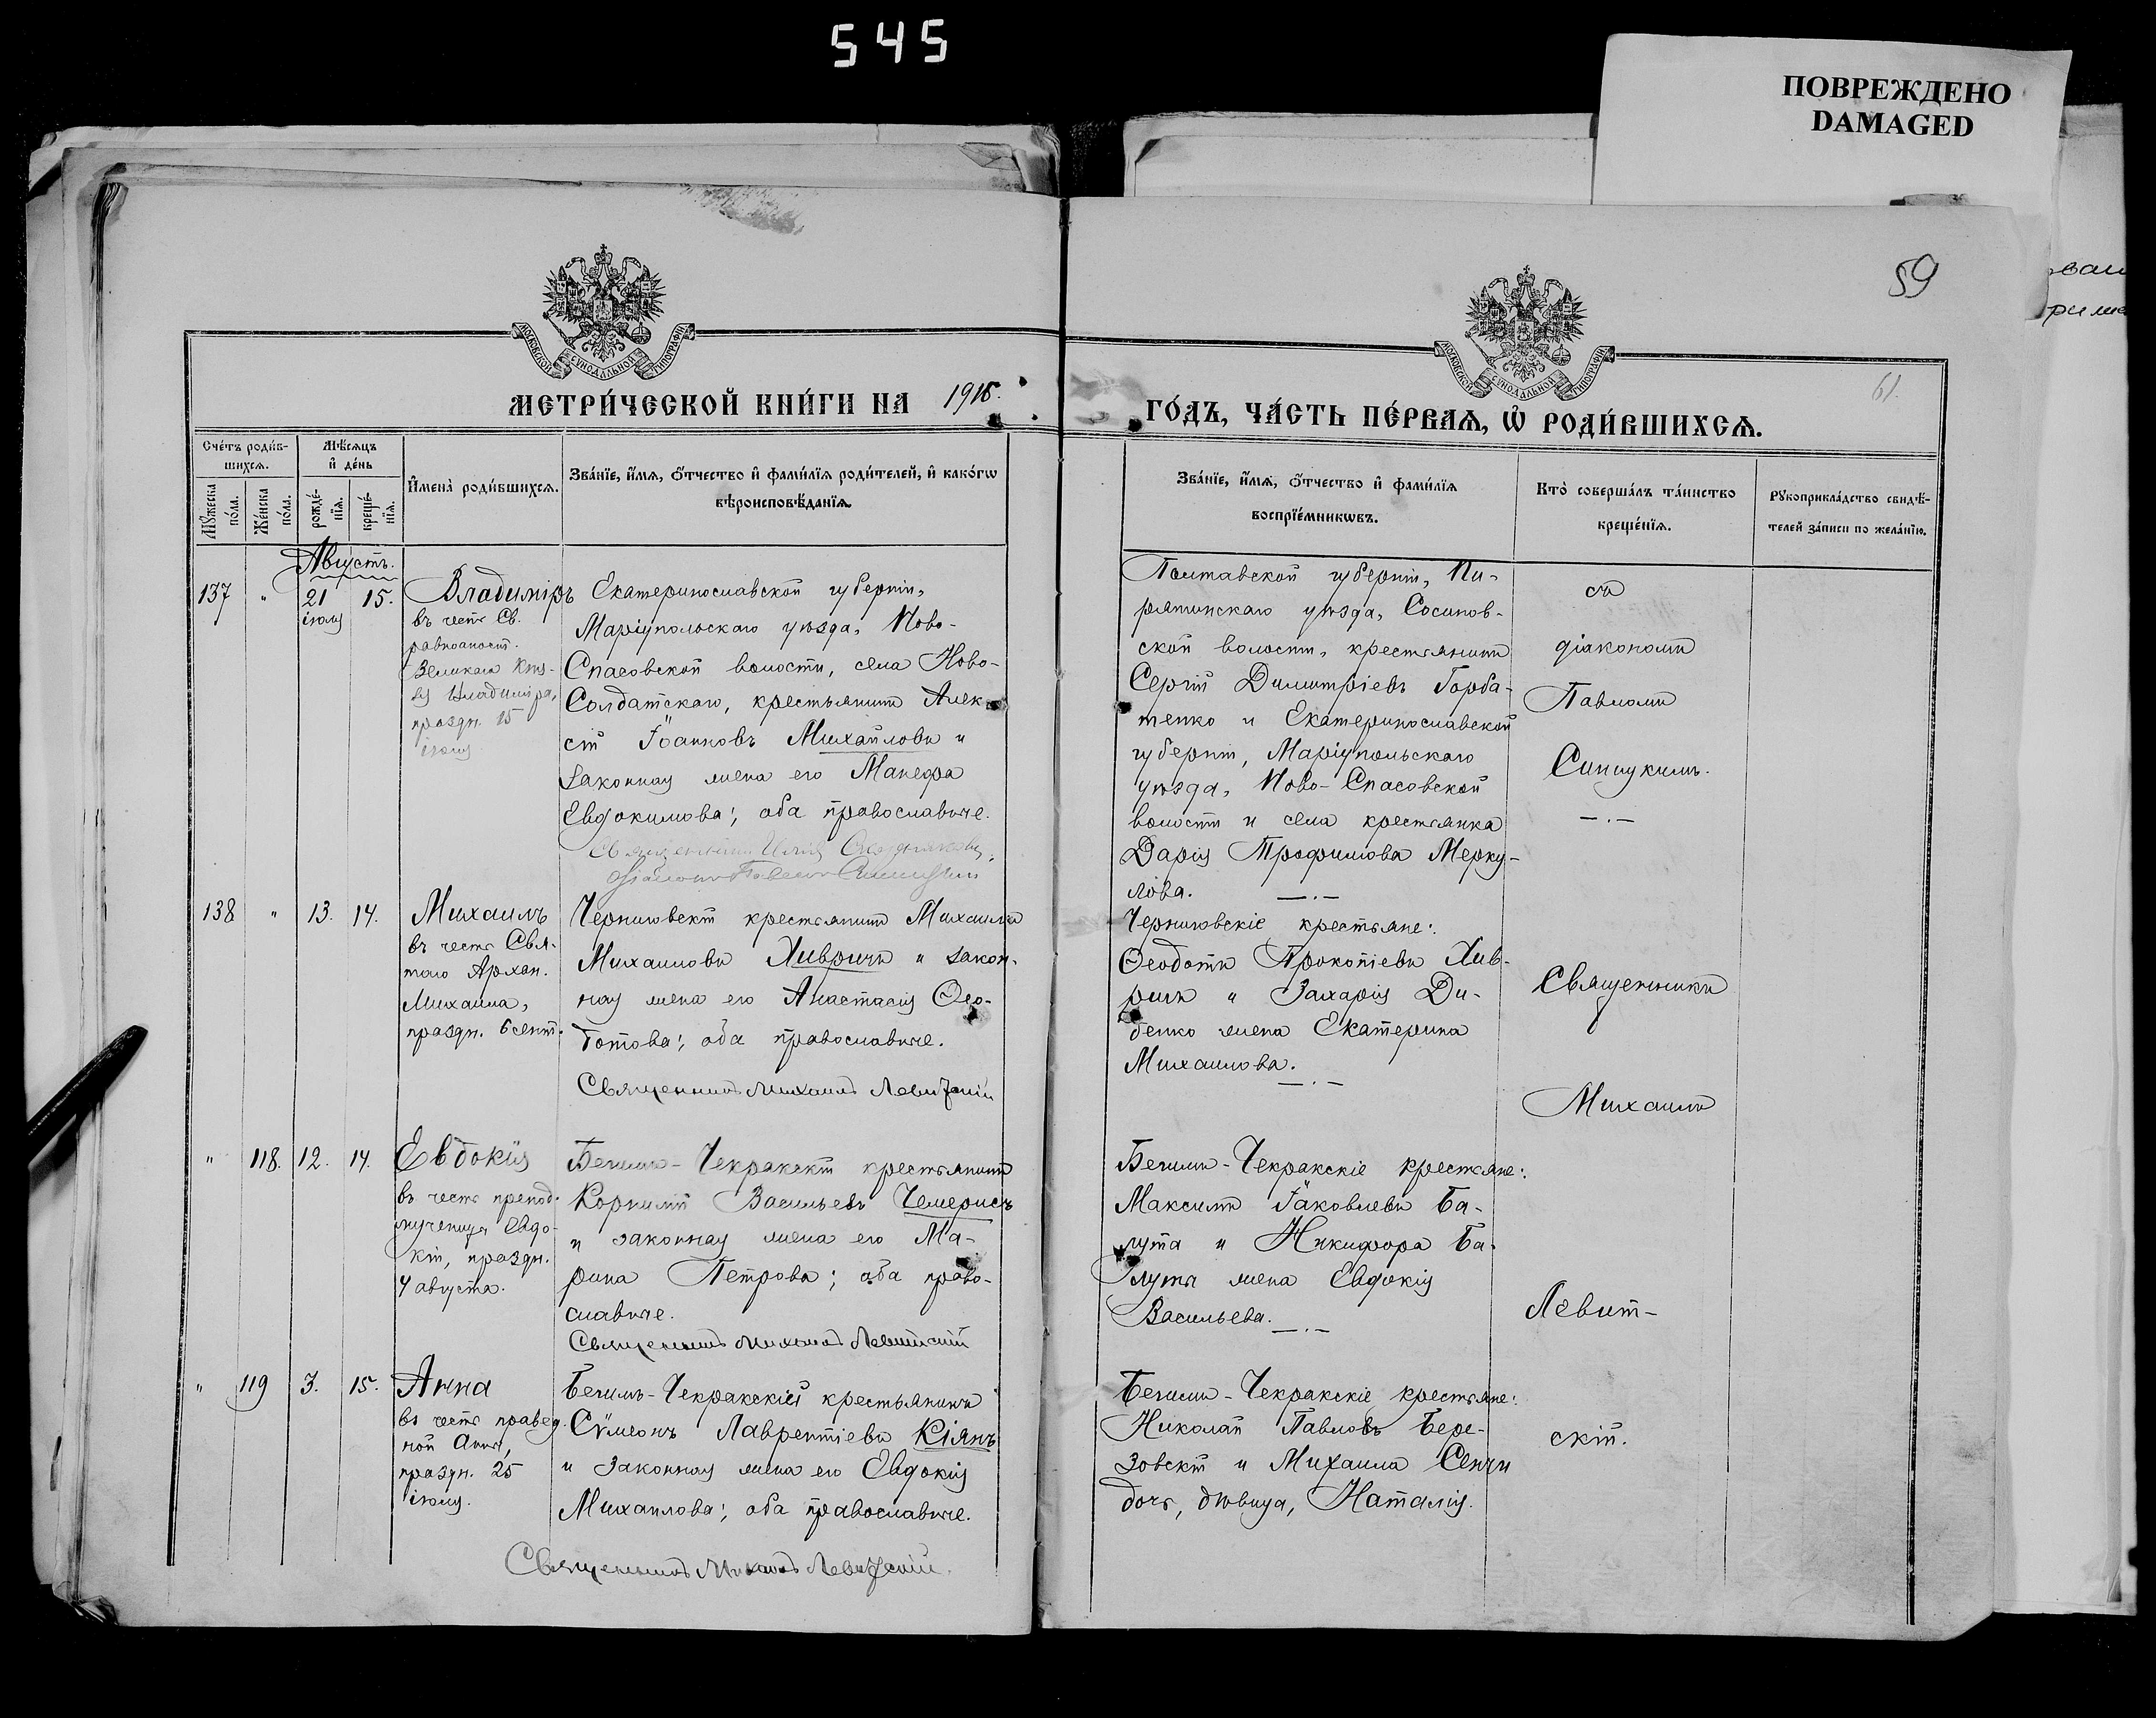 545
ПОВРЕЖДЕНО
DAMAGED
59
61.
МОСКОВСКОЙ СѴНОДАЛЬНОЙ ТИПОГРАФІИ
МОСКОВСКОЙ СѴНОДАЛЬНОЙ ТИПОГРАФІИ
МЕТРИ́ЧЕСКОЙ КНИ́ГИ НА 1915.
ГО́ДЪ, ЧА́СТЬ ПЕ́РВАЯ, Ѡ҆ РОДИ́ВШИХСЯ.
Сче́тъ роди́в-
шихся.
Мꙋ́жеска по́ла.
Же́нска по́ла.
Мѣ́сяцъ
и҆ де́нь
рожде́-
нїя.
креще́-
нїя.
И҆мена̀ роди́вшихся.
Зва́нїе, и҆́мя, ѻ҆́тчество и҆ фами́лїя роди́телей, и҆ како́гѡ
вѣроисповѣ́данїя.
Зва́нїе, и҆́мя, ѻ҆́тчество и҆ фами́лїя
воспрїе́мникѡвъ.
Кто̀ соверша́лъ та́инство
креще́нїя.
Рꙋкоприкла́дство свидѣ́-
телей за́писи по жела́нїю.
Августъ.
137 " 21 іюля 15.
Владиміръ
въ честь Св.
равноапост.
Великаго Кня-
зя Владиміра,
праздн. 15
іюля
Екатеринославской губерніи,
Маріупольскаго уѣзда, Ново-
Спасовской волости, села Ново-
Солдатскаго, крестьянинъ Алек-
сій Іоанновъ Михайловъ и
законная жена его Манефа
Евдокимова; оба православные.
діаконъ Павелъ
Полтавской губерніи, Пи-
рятинскаго уѣзда, Сосинов-
ской волости, крестьянинъ
Сергій Димитріевъ Горба-
тенко и Екатеринославской
губерніи, Маріупольскаго
уѣзда, Ново-Спасовской
волости и села крестьянка
Дарія Трофимова Мерку-
лова. —.—
съ
діакономъ
Павломъ
—.—
138 " 13. 14.
Михаилъ
въ честь Свя-
того Архан.
Михаила,
праздн. 6 сент.
Черниговскій крестьянинъ Михаилъ
Михаиловъ Хивричъ и закон-
ная жена его Анастасія Ѳео-
дотова; оба православные.
Священникъ Михаилъ Левитскій
Черниговскіе крестьяне:
Ѳеодотъ Прокопіевъ Хив-
ричъ и Захарія Ди-
денко жена Екатерина
Михаилова. —.—
Священникъ
Михаилъ
" 118. 12. 14.
Евдокія
въ честь препод.
мученицы Евдо-
кіи, праздн.
4 августа.
Бегимъ-Чекракскій крестьянинъ
Корнилій Васильевъ Чемерисъ
и законная жена его Ма-
рина Петрова; оба право-
славные.
Священникъ Михаилъ Левитскій
Бегимъ-Чекракскіе крестьяне:
Максимъ Іаковлевъ Ба-
лута и Никифора Ба-
луты жена Евдокія
Васильева. —.—
Левит-
" 119 3. 15.
Анна
въ честь правед.
ной Анны,
праздн. 25
іюля.
Бегимъ-Чекракскій крестьянинъ
Сѵмеонъ Лаврентіевъ Кіянъ
и законная жена его Евдокія
Михаилова; оба православные.
Священникъ Михаилъ Левитскій.
Бегимъ-Чекракскіе крестьяне:
Николай Павловъ Бере-
зовскій и Михаила Сенчи
дочь, дѣвица, Наталія.
скій.